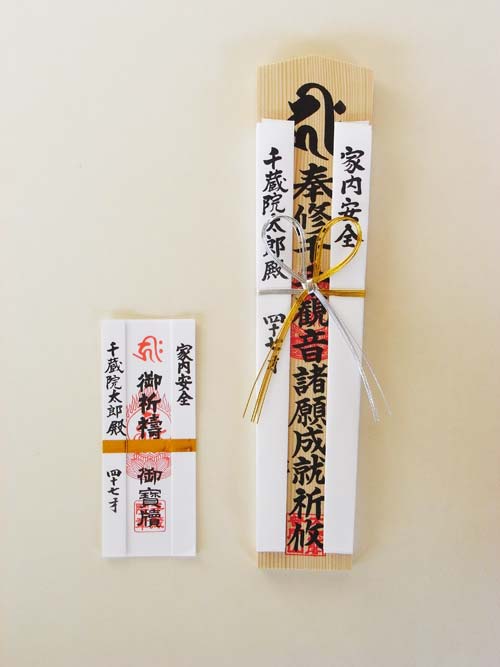 家内安全
奉修千手観音諸願成就祈攸
千蔵院太郎殿 四十七才
家内安全
御祈禱 御寶牘
千蔵院太郎殿 四十七才